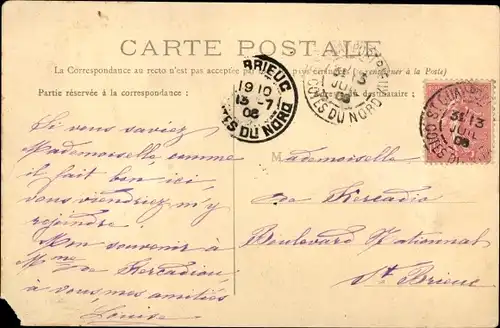 CARTE POSTALE
La Correspondance au recto n'est pas acceptée par
(se renseigner à la Poste)
Partie réservée à la correspondance :
destinataire :
BRIEUC
1910
13 -7
08
CÔTES DU NORD
13
JUIL
08
CÔTES DU NORD
ST QUAY
31 13
JUIL
08
CÔTES DU
Si vous saviez
Mademoiselle comme
il fait bon ici,
vous viendriez m'y
rejoindre.
Mon souvenir à
Mme de Kercadiou,
à vous mes amitiés
Louise
Mademoiselle
de Kercadio
Boulevard National
St Brieuc